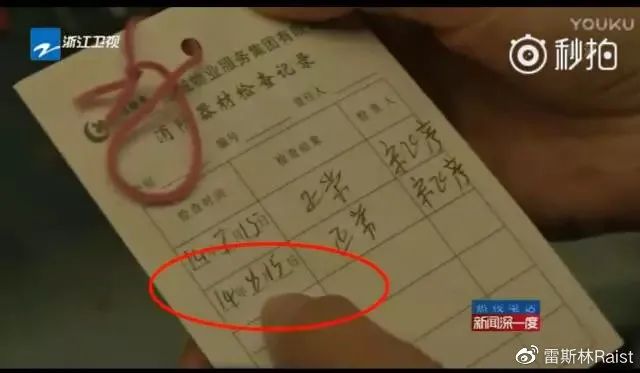 YOUKU
浙江卫视
秒拍
物业服务集团有限
消防器材检查记录
编号 责任人
检查时间 检查结果 检查人
14年3月15日 正常
14年4月15日 正常
热线电话
新闻深一度
@雷斯林Raist